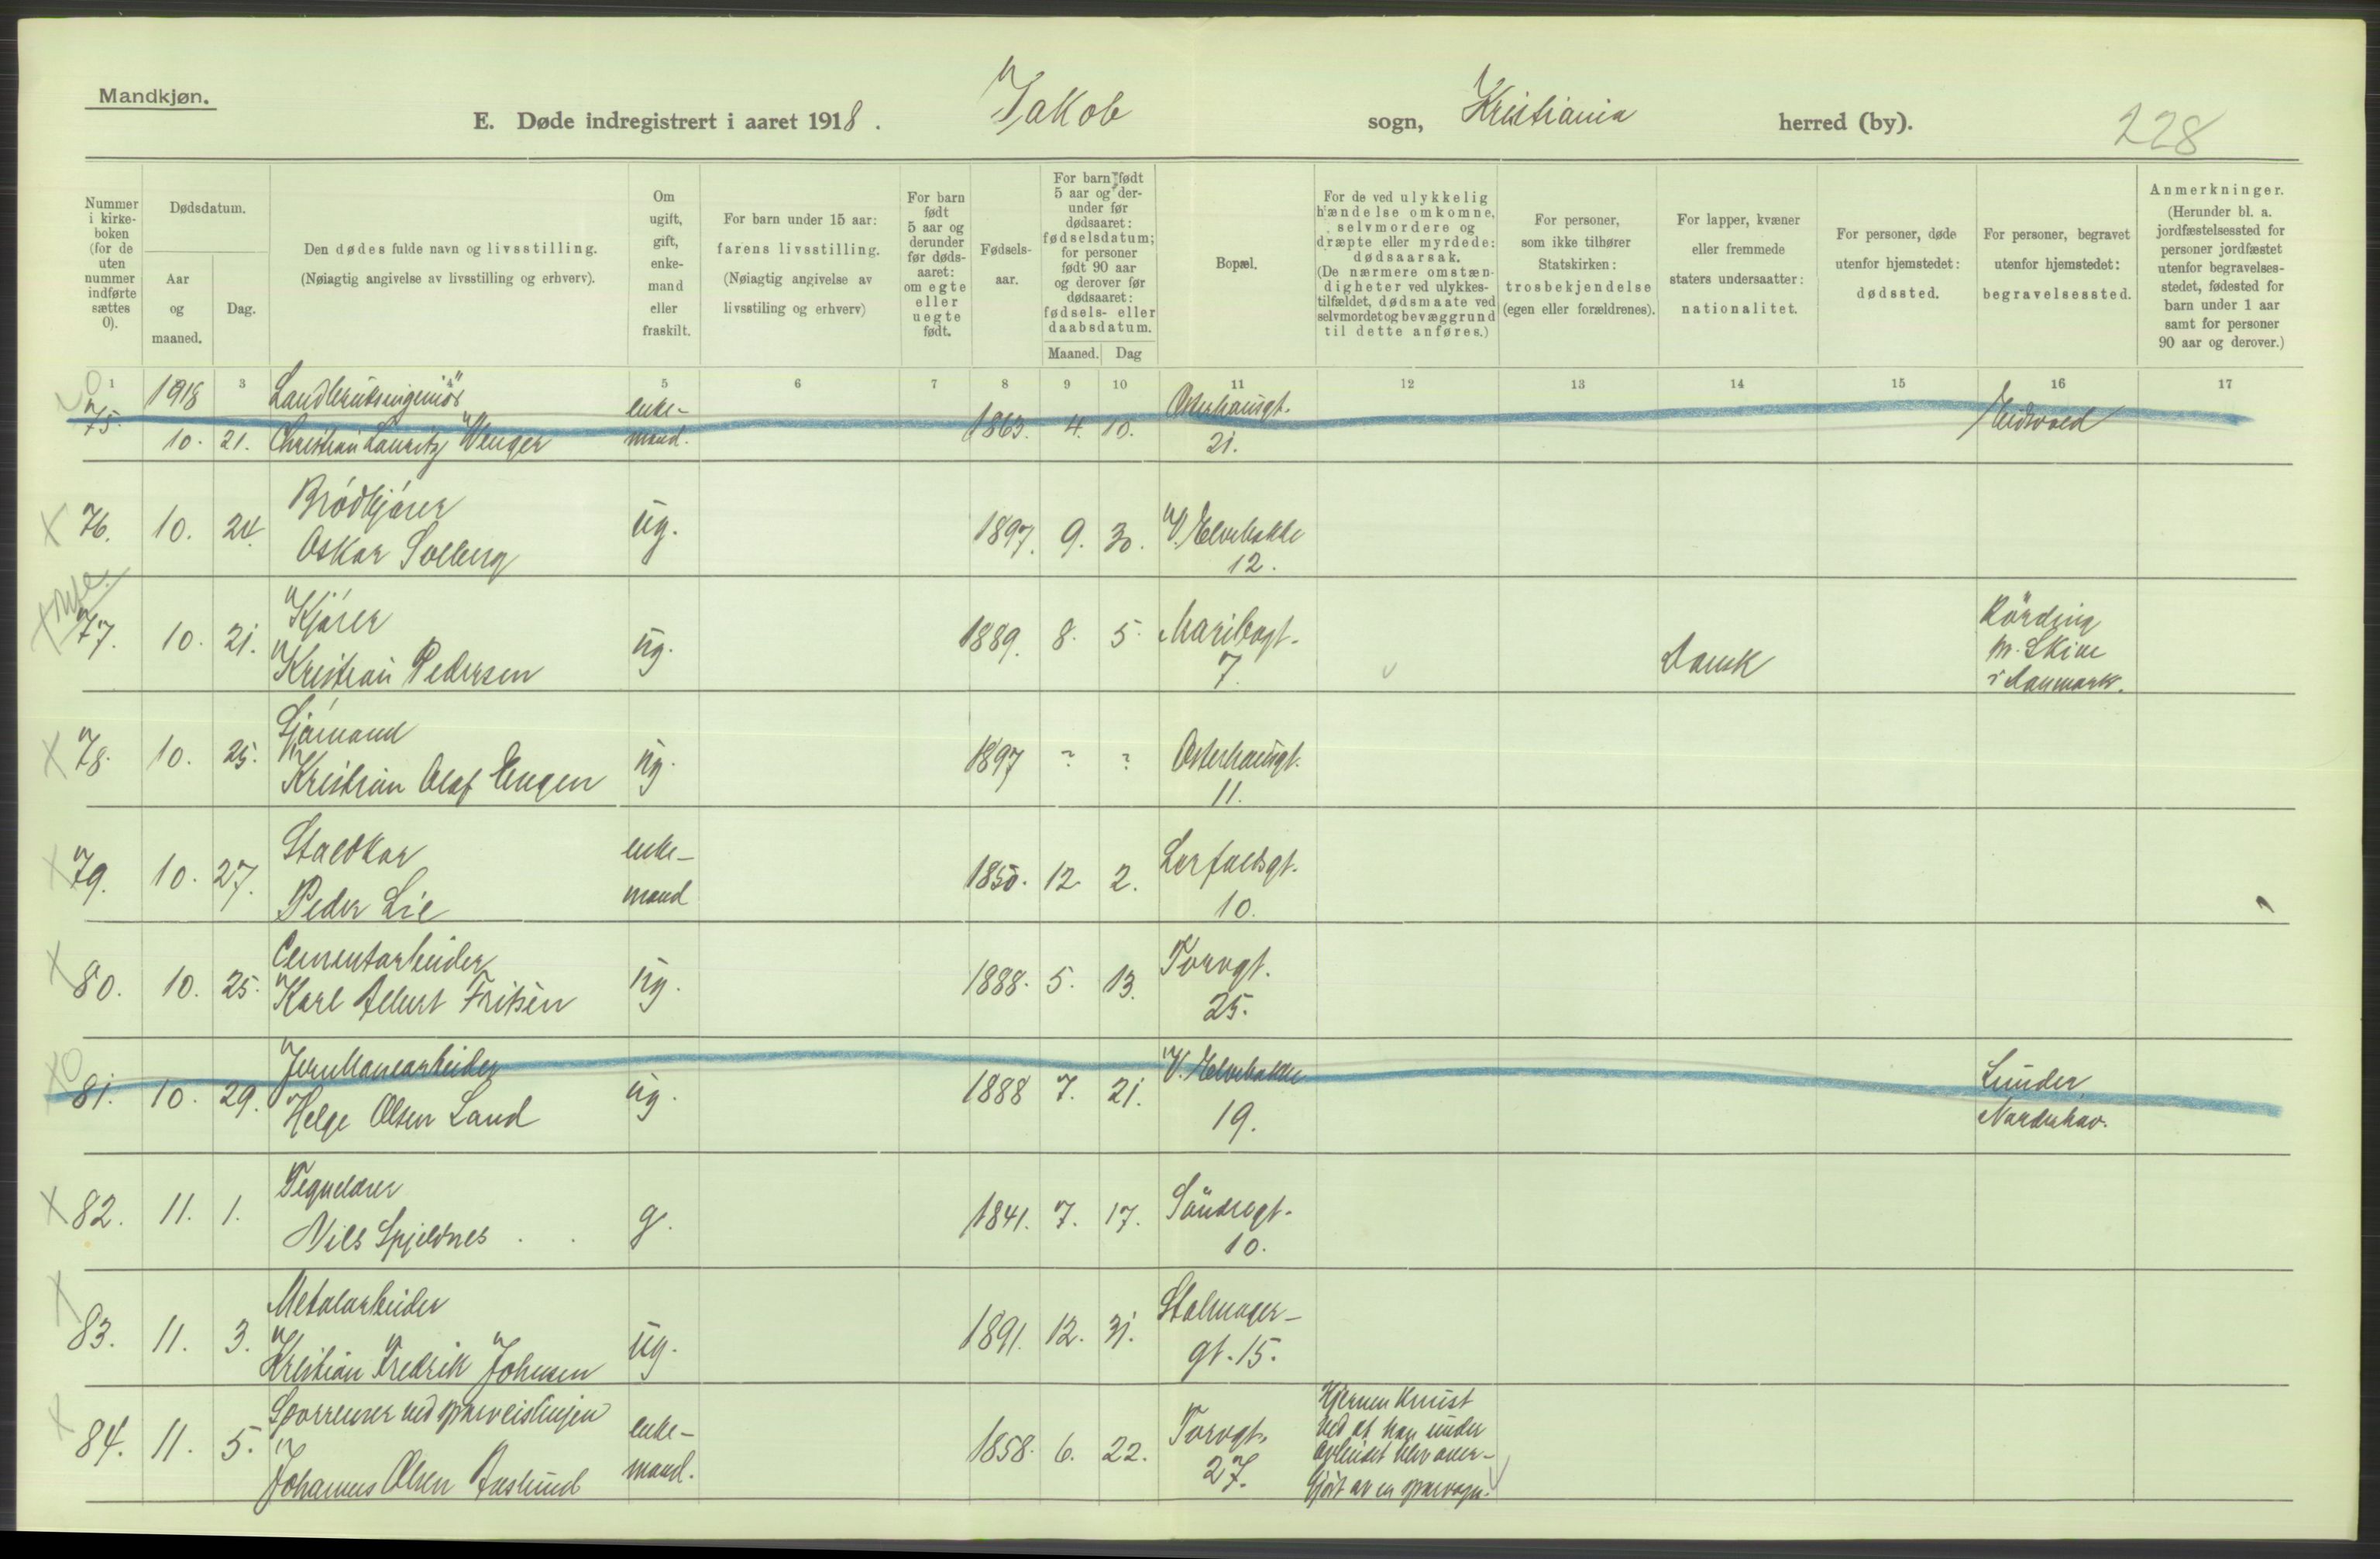 Mandkjøn.
E. Døde indregistrert i aaret 1918. Jakob sogn, Kristiania herred (by). 228
Nummer i kirke-boken (for de uten nummer indførte sættes 0).
Dødsdatum.
Aar og maaned.
Dag.
Den dødes fulde navn og livsstilling.
(Nøiagtig angivelse av livsstilling og erhverv).
Om ugift, gift, enke-mand eller fraskilt.
For barn under 15 aar:
farens livsstilling.
(Nøiagtig angivelse av livsstiling og erhverv)
For barn født 5 aar og derunder før døds-aaret: om egte eller uegte født.
Fødsels-aar.
For barn født 5 aar og der-under før dødsaaret: fødselsdatum; for personer født 90 aar og derover før dødsaaret: fødsels- eller daabsdatum.
Maaned. Dag
Bopæl.
For de ved ulykkelig hændelse omkomne, selvmordere og dræpte eller myrdede: dødsaarsak.
(De nærmere omstæn-digheter ved ulykkes-tilfældet, dødsmaate ved selvmordet og bevæggrund til dette anføres.)
For personer, som ikke tilhører Statskirken: trosbekjendelse (egen eller forældrenes).
For lapper, kvæner eller fremmede staters undersaatter: nationalitet.
For personer, døde utenfor hjemstedet: dødssted.
For personer, begravet utenfor hjemstedet: begravelsessted.
Anmerkninger.
(Herunder bl. a. jordfæstelsessted for personer jordfæstet utenfor begravelses-stedet, fødested for barn under 1 aar samt for personer 90 aar og derover.)
1 3 4 5 6 7 8 9 10 11 12 13 14 15 16 17
0 1918 Landbruksingeniør enke- Osterhausgt. Eidsvold
75. 10. 21. Christian Lauritz Wenger mand. 1863. 4. 10. 21.
Brødkjører
x 76. 10. 24. Oskar Solberg ug. 1897. 9. 30. V. Elvebakke 12.
Kjører
x 77. 10. 21. Kristian Pedersen ug. 1889. 8. 5. Maribogt. 7. Dansk Rørding m. Skive i Danmark.
Sjømand
x 78. 10. 25. Kristian Olaf Engen ug. 1897 ? ? Osterhausgt. 11.
Staldkar enke-
x 79. 10. 27. Peder Lie mand 1850. 12. 2. Lerfaldsgt. 10.
Cementarbeider
x 80. 10. 25. Karl Albert Fritsen ug. 1888. 5. 13. Torvgt. 25.
Jernbanearbeider V. Elvebakke Lunder
x0 81. 10. 29. Helge Olsen Land ug. 1888 7. 21. 19. Norderhov.
Tegnelærer
x 82. 11. 1. Nils Spjeldnes g. 1841. 7. 17. Søndregt. 10.
Metalarbeider
x 83. 11. 3. Kristian Fredrik Johnsen ug. 1891. 12. 31. Stolmager-gt. 15.
Sporrenser ved sporveislinjen enke- Hjernen knust
x 84. 11. 5. Johannes Olsen Aaslund mand. 1858. 6. 22. Torvgt. 27. ved at han under
arbeidet blev over-
kjørt av en sporvogn.